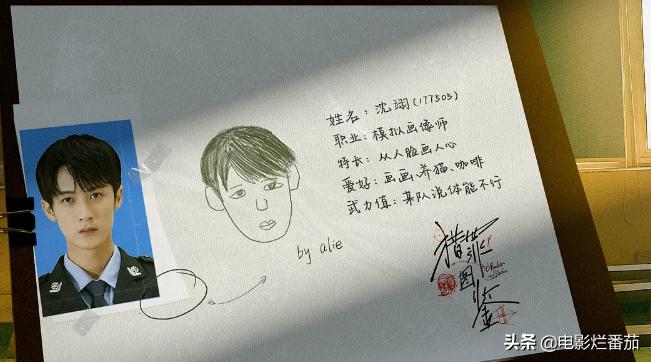 姓名：沈翊(177505)
职业：模拟画像师
特长：从人脸画人心
爱好：画画、养猫、咖啡
武力值：某队说体能不行
by alie
猎罪图鉴
头条 @电影烂番茄